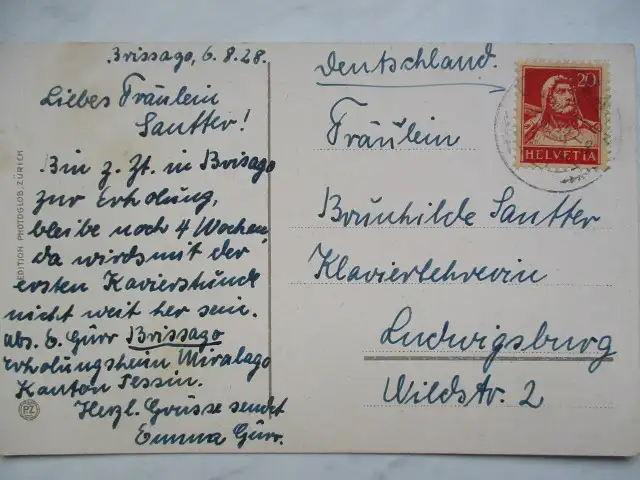 Brissago, 6.8.28.
Liebes Fräulein
Sautter!
Bin z. Zt. in Brisago
zur Erholung,
bleibe noch 4 Wochen,
da wirds mit der
ersten Kavierstunde
nicht weit her sein.
abs. E. Gürr Brissago
Erholungsheim Miralago
Kanton Tessin.
Herzl. Grüsse sendet
Emma Gürr.
EDITION PHOTOGLOB, ZÜRICH
PZ
Deutschland.
20
HELVETIA
Fräulein
Brünhilde Sautter
Klavierlehrerin
Ludwigsburg
Wildstr. 2